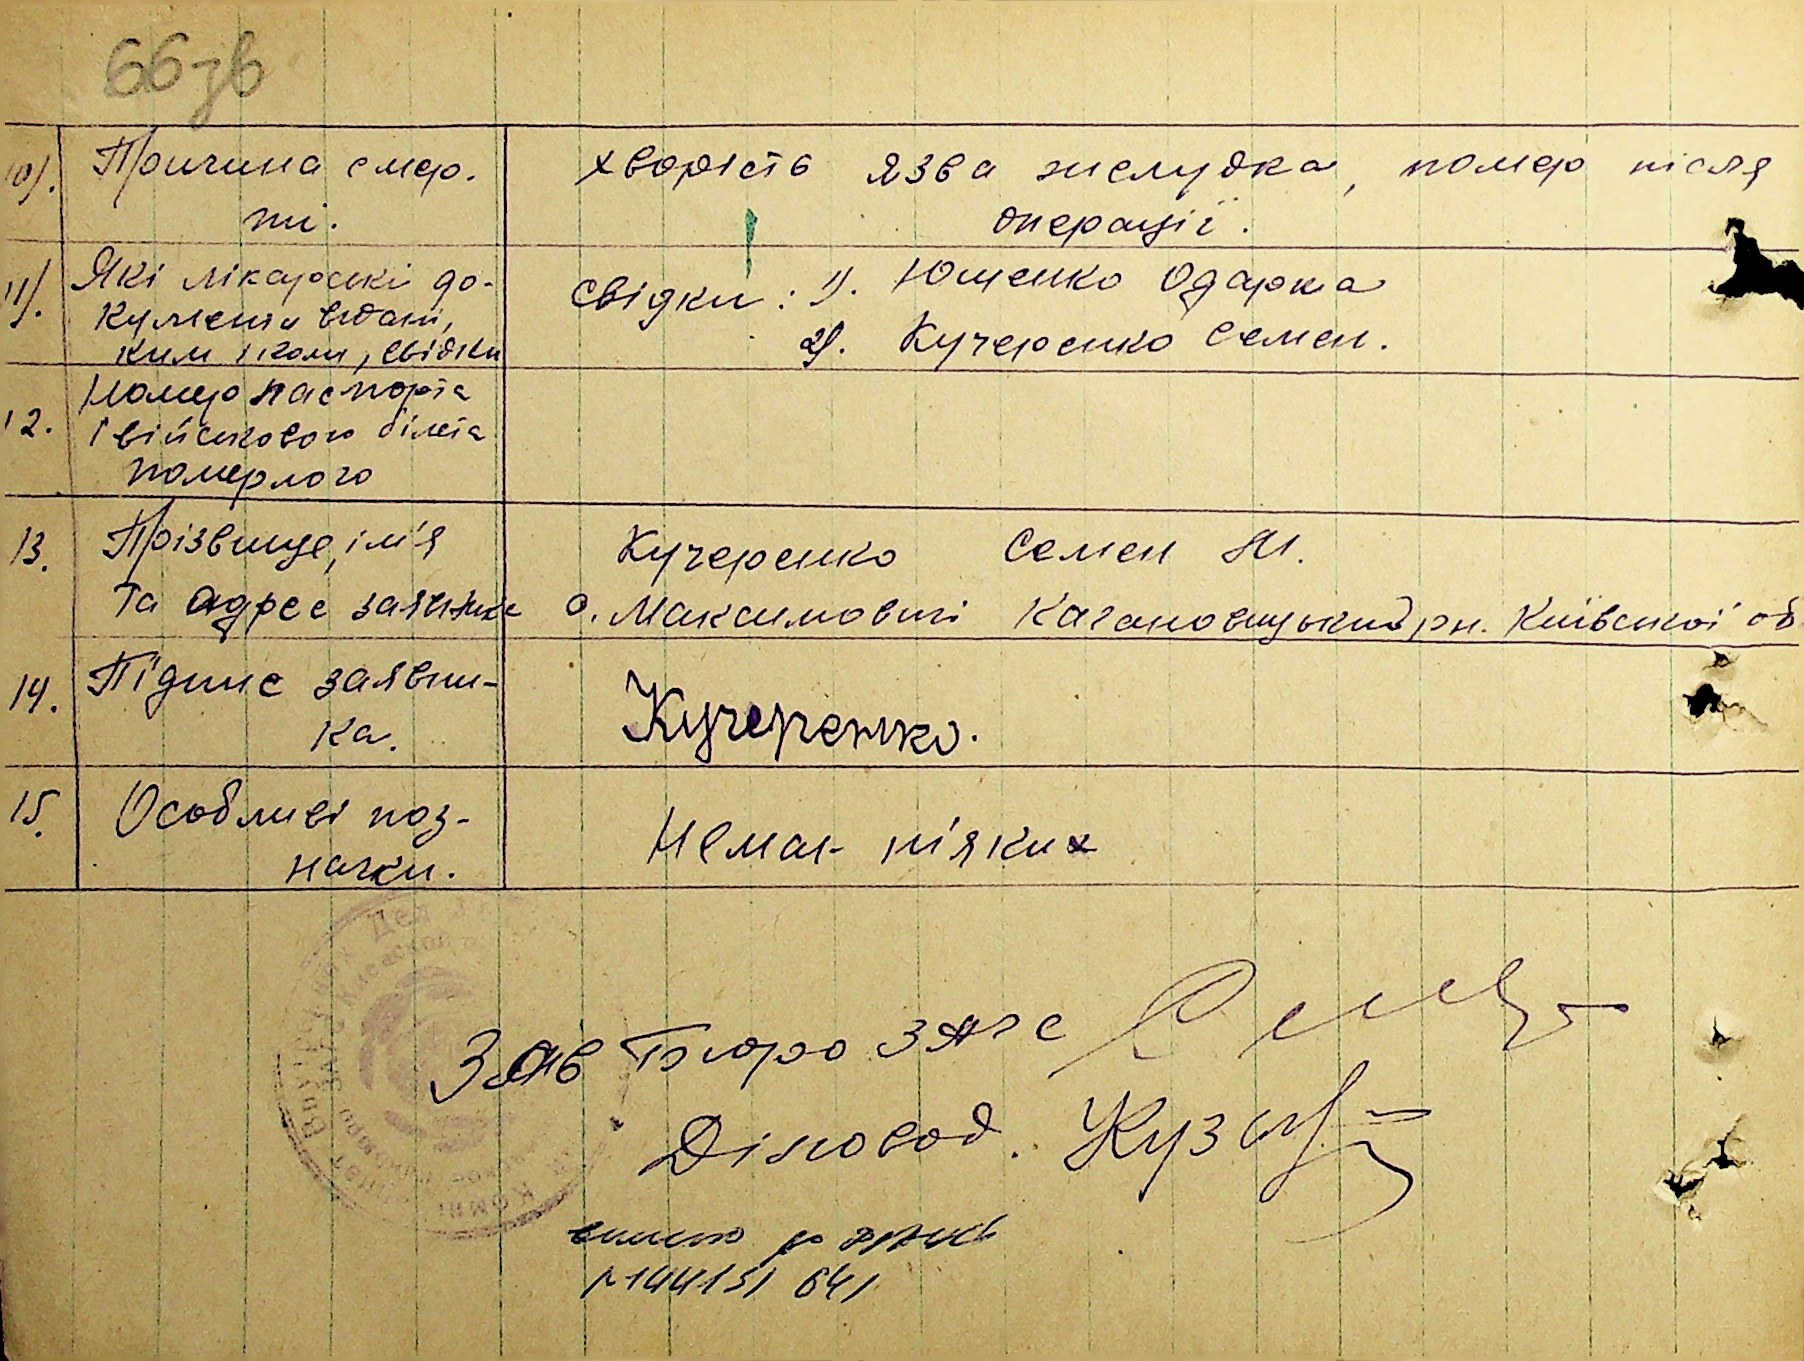 66зв
10). Причина смер-
ті.
хворість язва жслудка, помер після
операції.
11). Які лікарські до-
кументи видані,
ким і коли, свідки
свідки: 1). Ющенко Одарка
2). Кучеренко Семен.
12. Номер паспорта
і військового білета
померлого
13. Прізвище, ім'я
та адрес заявника
Кучеренко Семен М.
с. Максимовичі Кагановицький рн. Київської об
14. Підпис заявни-
ка.
Кучеренко.
15. Особливі поз-
начки.
Немає ніяких
Зав Бюро ЗАГС
Діловод.